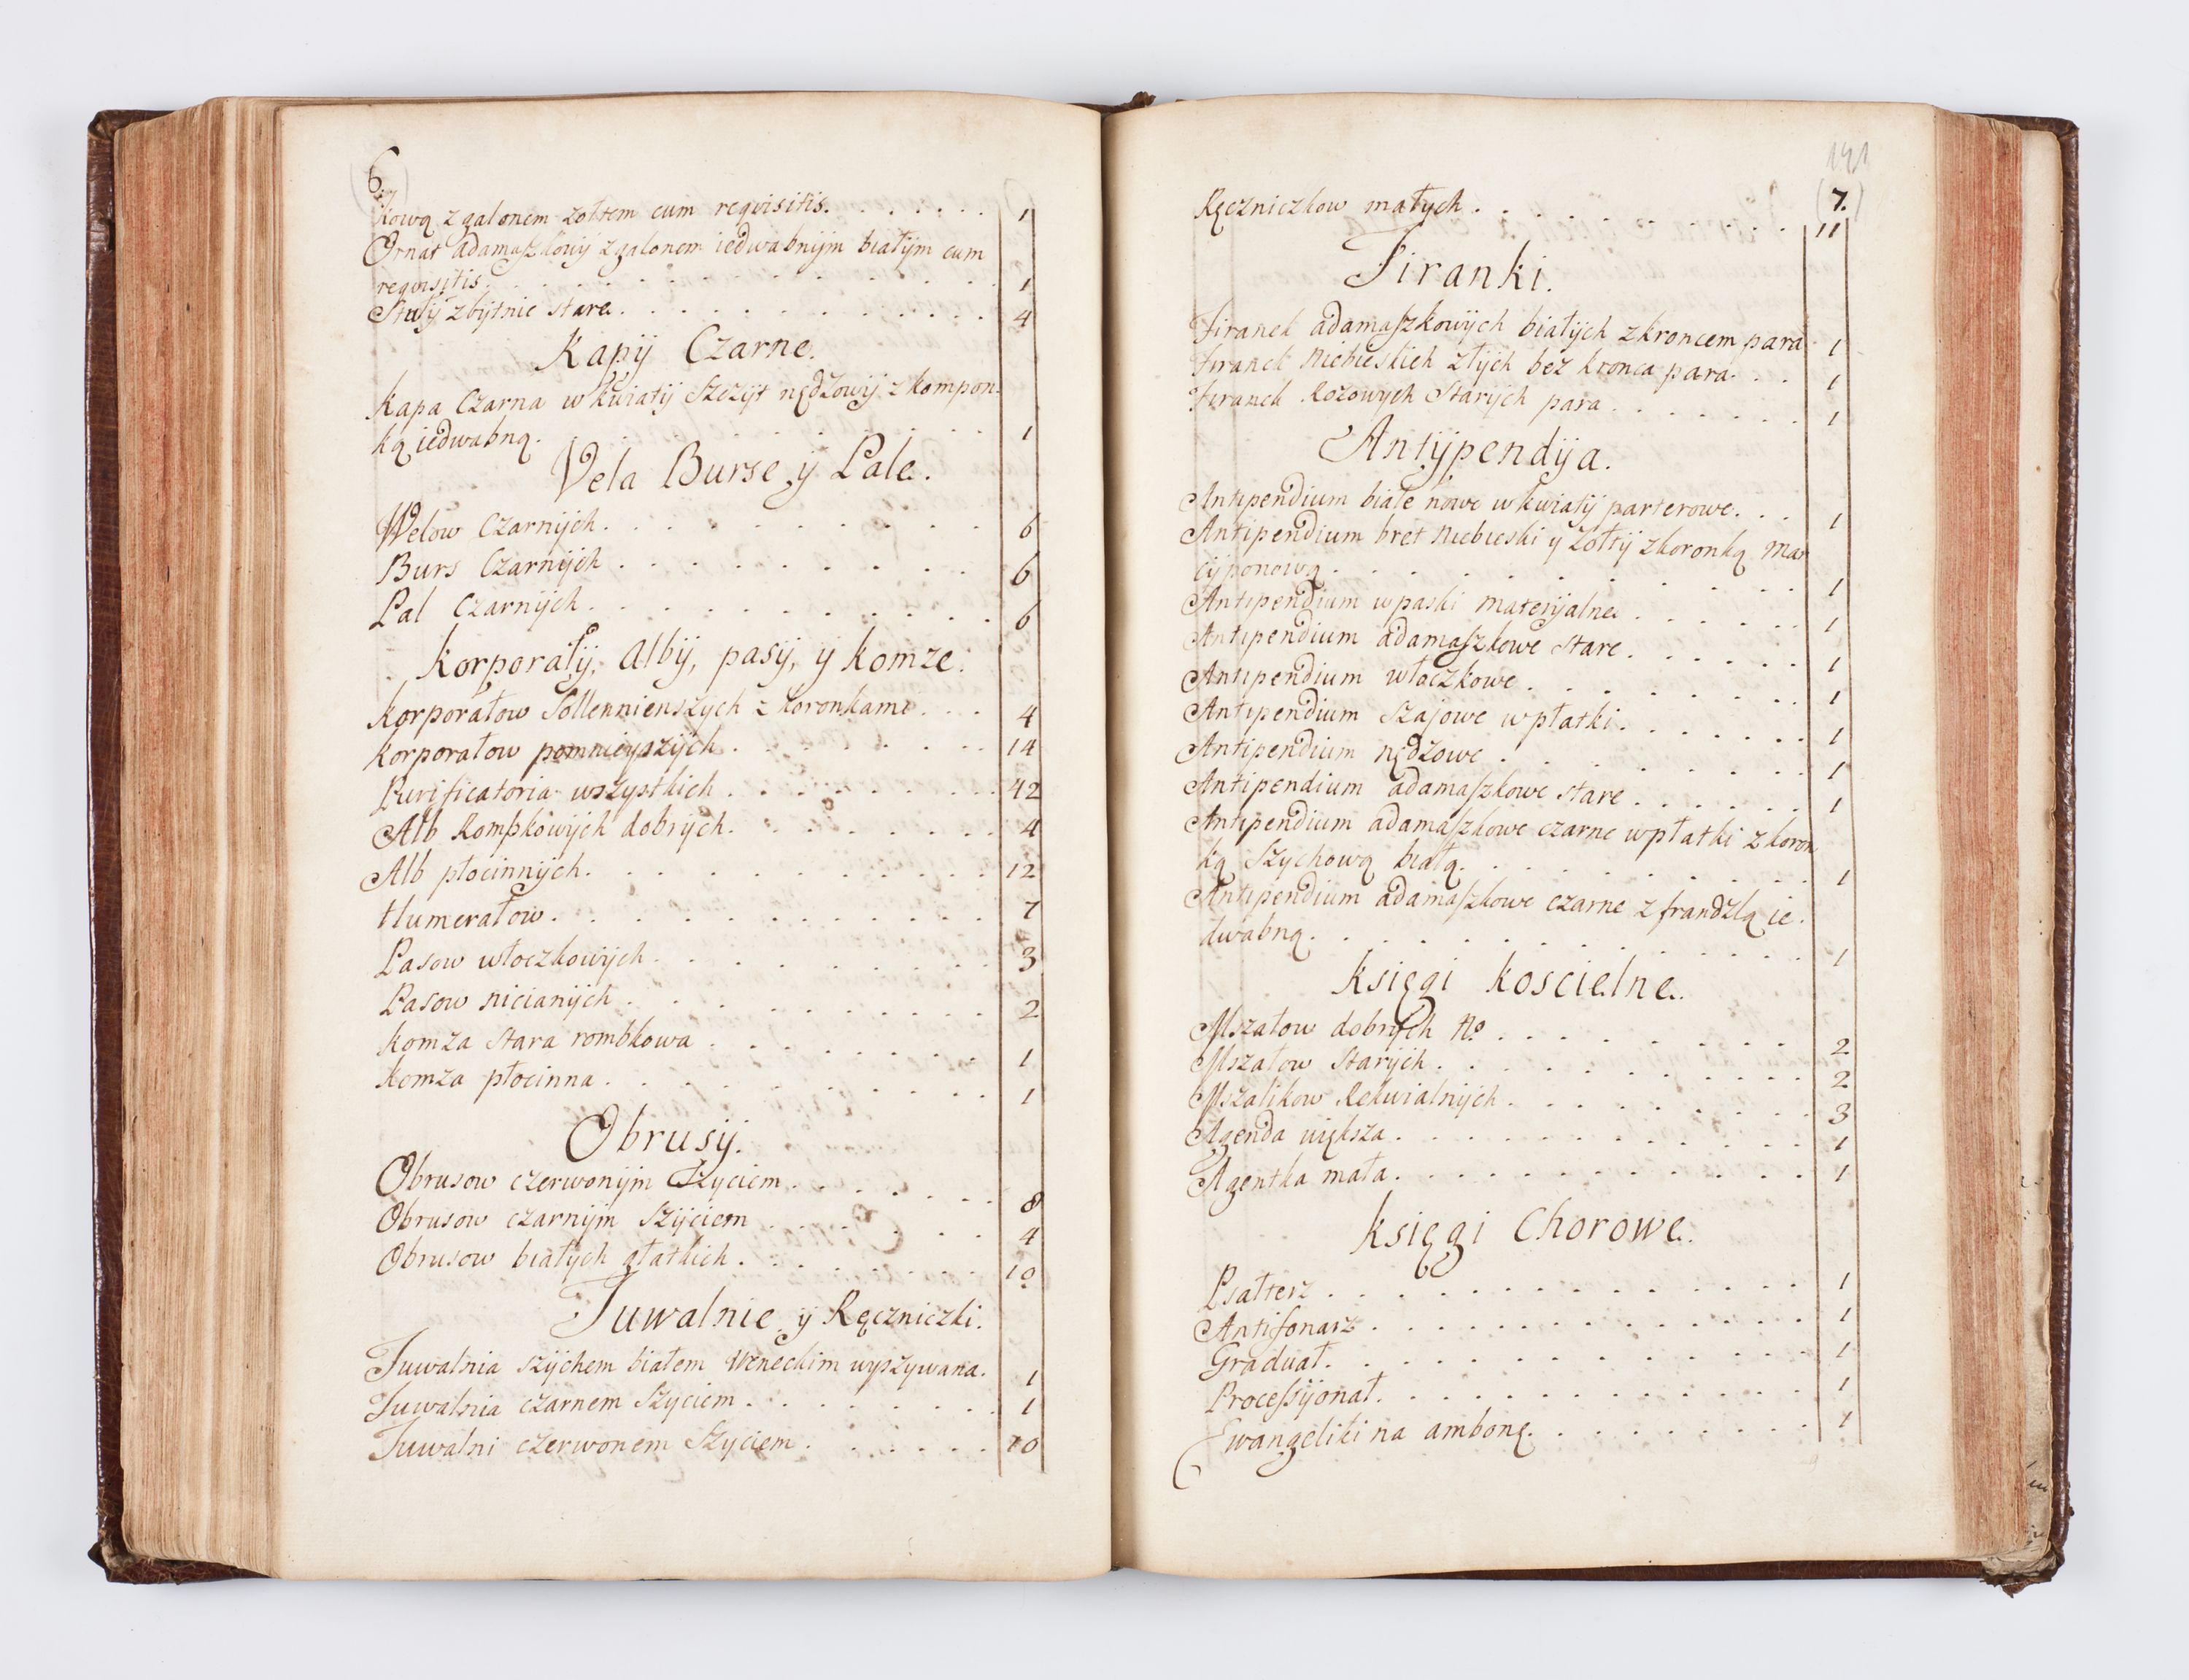 6.
kową z galonem zołtem cum requisitis. 1
Ornat adamaszkowÿ z galonem iedwabnÿm białÿm cum
requisitis. 1
Stuły zbÿtnie stare. 4
Kapÿ Czarne.
Kapa Czarna w kwiatÿ Szczÿt nędzowÿ z kompon-
ką iedwabną. 1
Vela Burse ÿ Pale.
Welow Czarnÿch. 6
Burs Czarnÿch 6
Pal Czarnÿch. 6
Korporałÿ, Albÿ, pasÿ, ÿ Komze.
Korporałow Sollennienszych z koronkami 4
Korporałow pomnieyszÿch. 14
Purificatoria wszystkich 42
Alb Rompkowÿch dobrÿch. 4
Alb płocinnÿch. 12
Humerałow. 7
Pasow włoczkowÿch. 3
Pasow nicianÿch 2
Komza stara rombkowa 1
Komza płocinna. 1
Obrusÿ.
Obrusow czerwonÿm Szyciem. 8
Obrusow czarnÿm Szÿciem 4
Obrusow białych głatkich. 10
Tuwalnie ÿ Ręczniczki.
Tuwalnia szÿchem białem Weneckim wyszywana. 1
Tuwalnia czarnem Szyciem. 1
Tuwalni czerwonem Szyciem. 10
141
7.
Ręczniczkow małych. 11
Firanki.
Firanek adamaszkowÿch białÿch z kroncem para 1
Firanek Niebieskich złÿch bez kronca para. 1
Firanek Rozowych Starÿch para 1
Antÿpendÿa.
Antipendium białe nowe w kwiatÿ parterowe. 1
Antipendium bret Niebieski y zołtÿ z koronką mar
cÿponową. 1
Antipendium w paski materÿalne. 1
Antipendium adamaszkowe stare. 1
Antipendium włoczkowe. 1
Antipendium szajowe w płatki. 1
Antipendium nędzowe 1
Antipendium adamaszkowe stare. 1
Antipendium adamaszkowe czarne w płatki z koron
ką Szychową białą. 1
Antipendium adamaszkowe czarne z frandzlą ie.
dwabną. 1
Księgi Koscielne.
Mszałow dobrÿch No. 2
Mszałow Starÿch. 2
Mszalikow Rekwialnÿch. 3
Agenda większa. 1
Agentka mała. 1
Księgi Chorowe.
Psałterz 1
Antifonarz 1
Graduał. 1
Processÿonał. 1
Ewangeliki na ambonę. 1